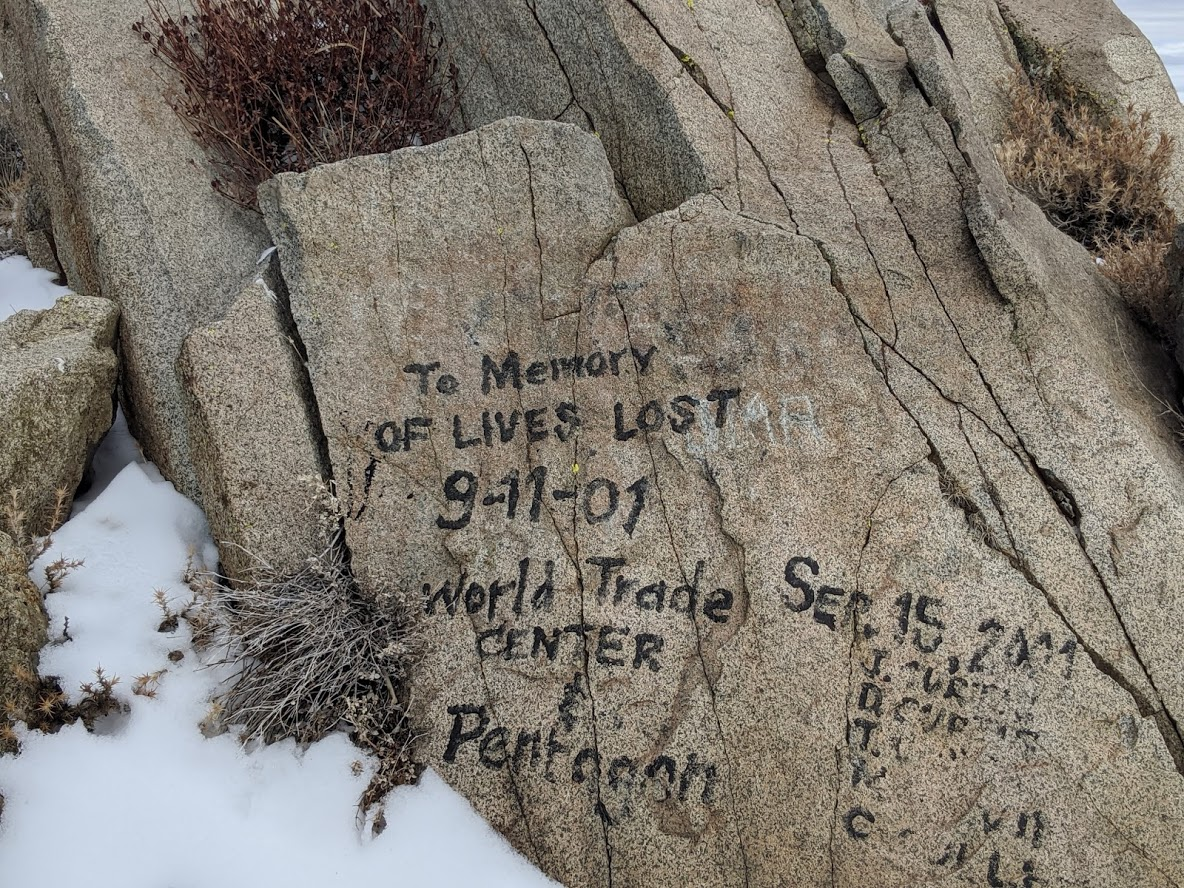 To Memory
OF LIVES LOST
9-11-01
World Trade
CENTER
&
Pentagon
SEP. 15, 2011
J. CURTIS
D. CURTIS
T.
C.